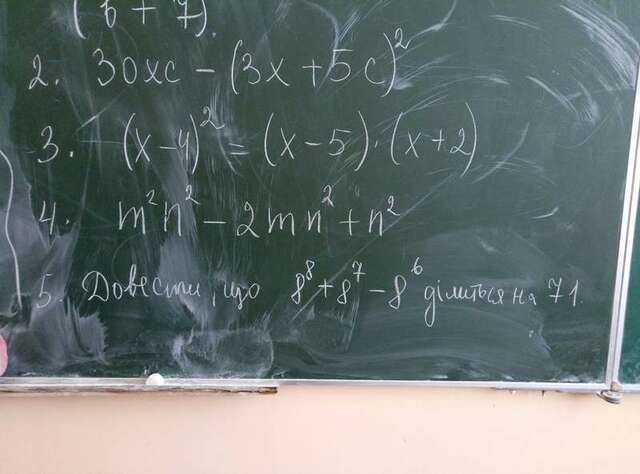 (b + 7).
2. 30xc - (3x + 5c)²
3. (x - 4)² = (x - 5) · (x + 2)
4. m²n² - 2mn² + n²
5. Довести, що 8⁸ + 8⁷ - 8⁶ ділиться на 71.